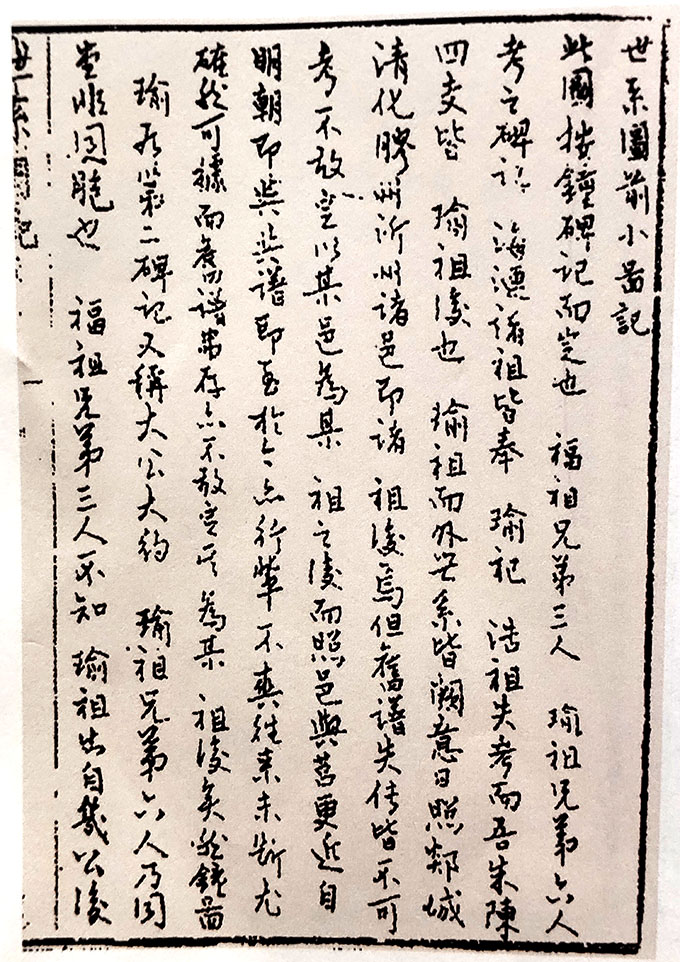 世系圖前小啚記
此圖按鐘碑記而定也 福祖兄弟三人 瑜祖兄弟六人
考之碑記 海漂諸祖皆奉 瑜祀 浩祖失考而吾朱陳
四支皆 瑜祖後也 瑜祖而外世系皆闕意日照郯城
清化膠州沂州諸邑即諸 祖後焉但舊譜失傳皆不可
考不敢定以某邑為某 祖之後而照邑與莒更近自
明朝即與共譜即至於今亦行輩不爽往來未斷尤
確然可據而舊譜弗存亦不敢定其為某 祖後矣然鐘啚
瑜居第二碑記又稱大公大約 瑜祖兄弟六人乃同
堂非同胞也 福祖兄弟三人不知 瑜祖出自幾公後
世系圖記
一